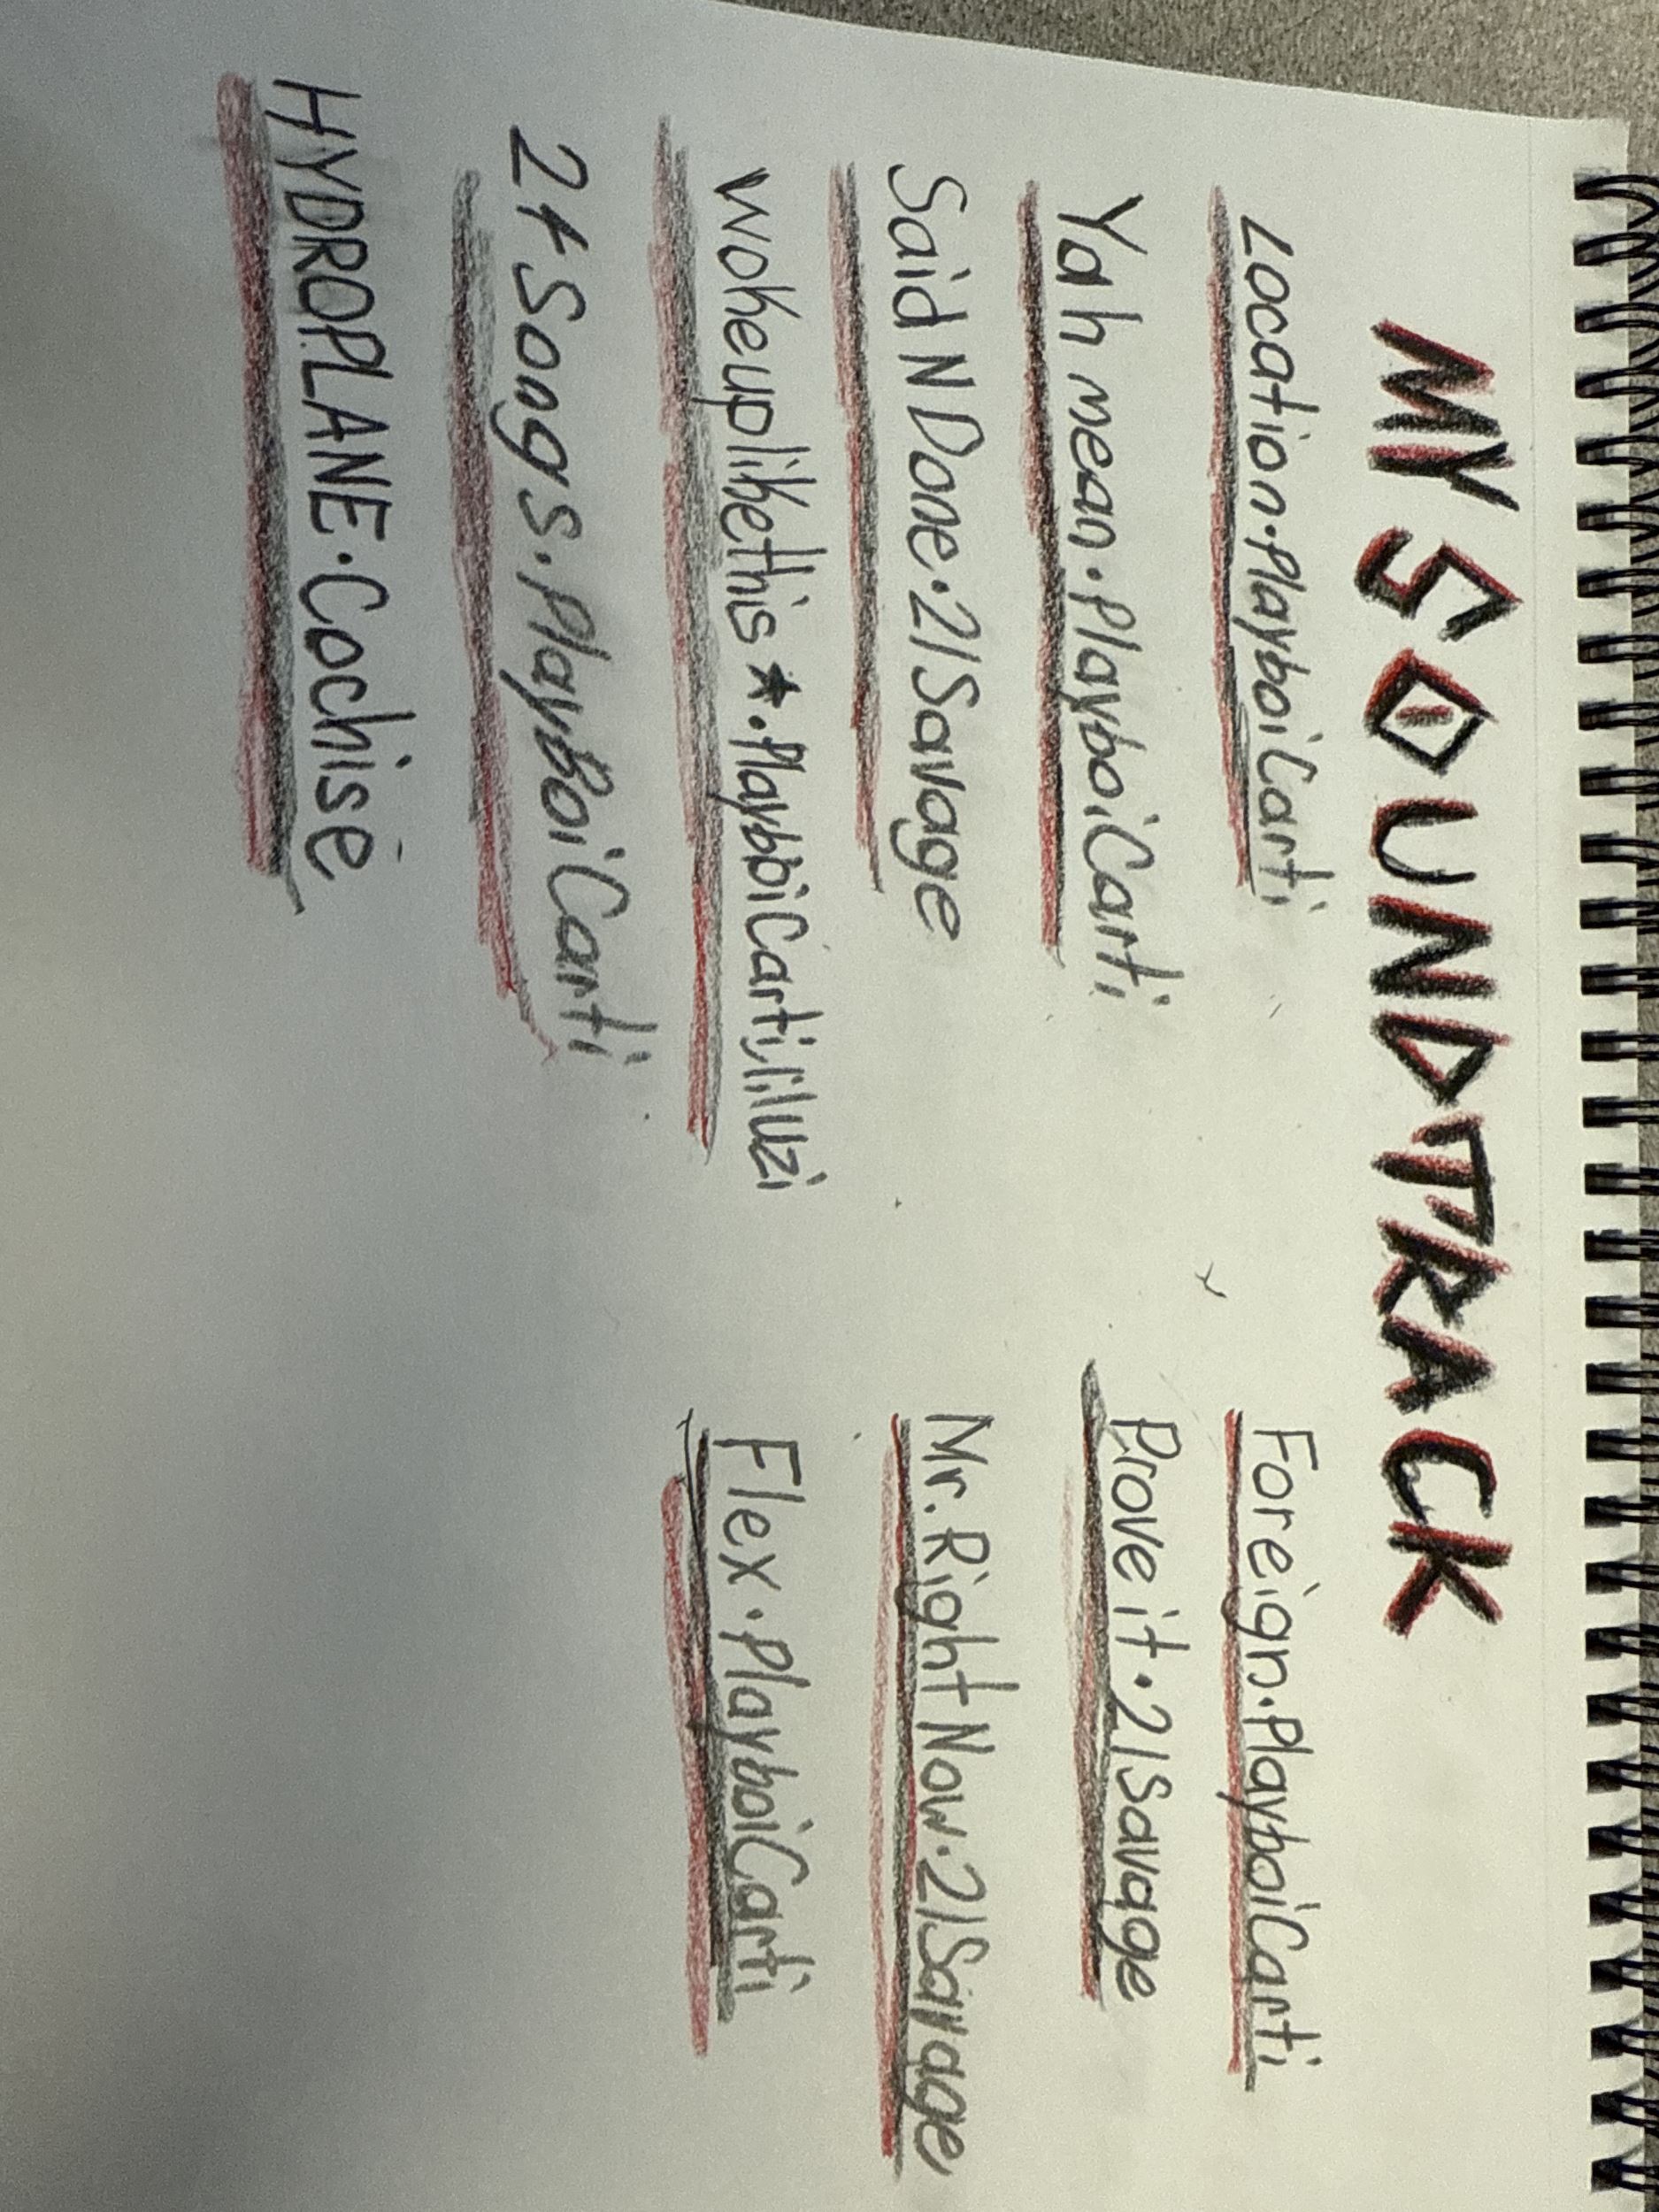 MY SOUNDTRACK
Location.PlayboiCarti
Yah mean.PlayboiCarti
Said N Done.21Savage
wokeuplikethis*.PlayboiCarti,liluzi
24 Songs.PlayBoiCarti
HYDROPLANE.Cochise
Foreign.PlayboiCarti
Prove it.21Savage
Mr.Right Now.21Savage
Flex.PlayboiCarti